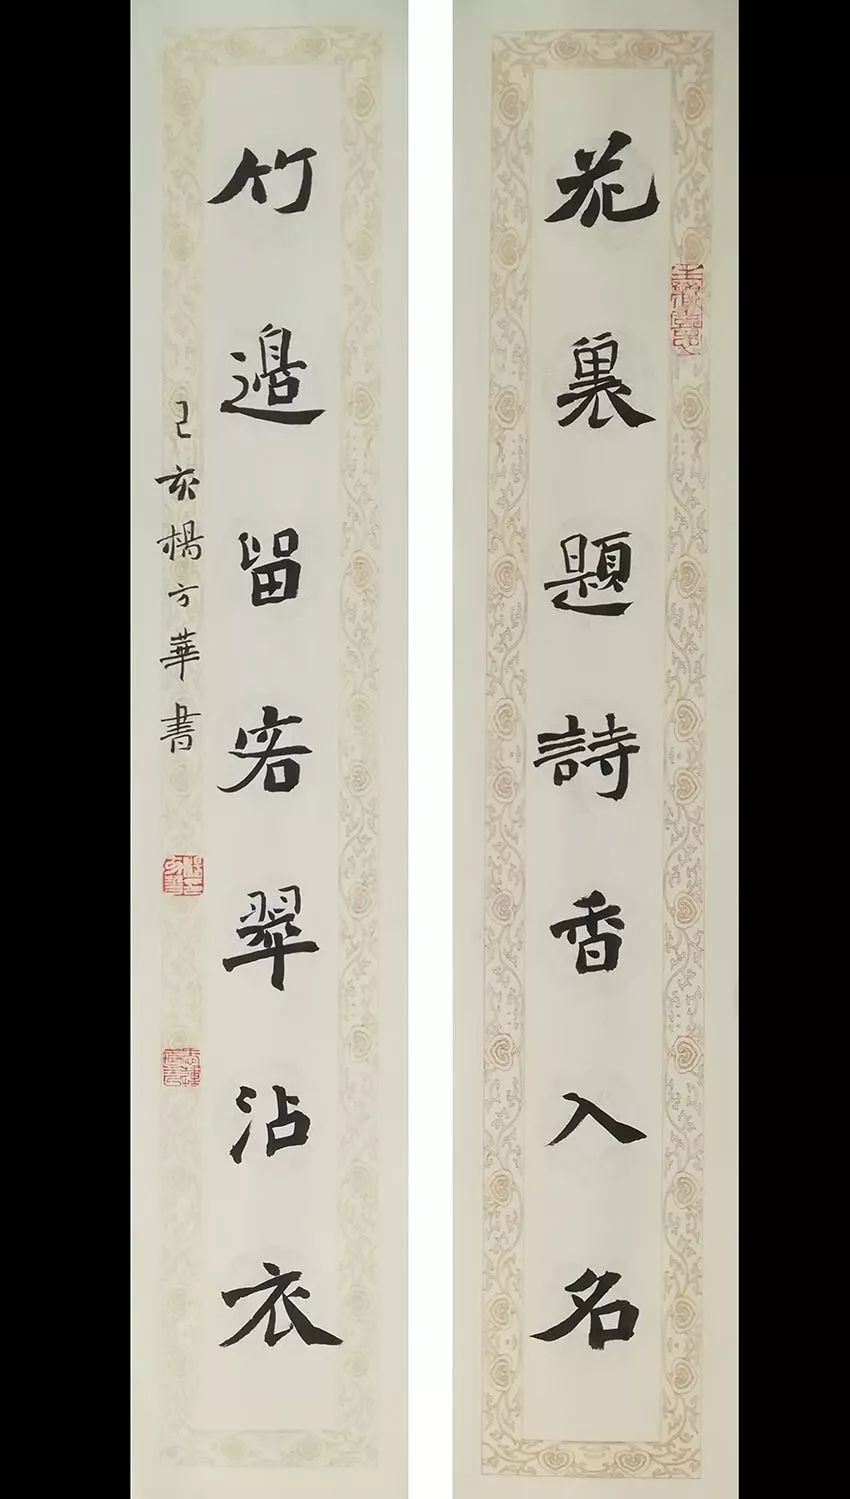 花裏題詩香入名
竹邊留客翠沾衣
己亥楊方華書